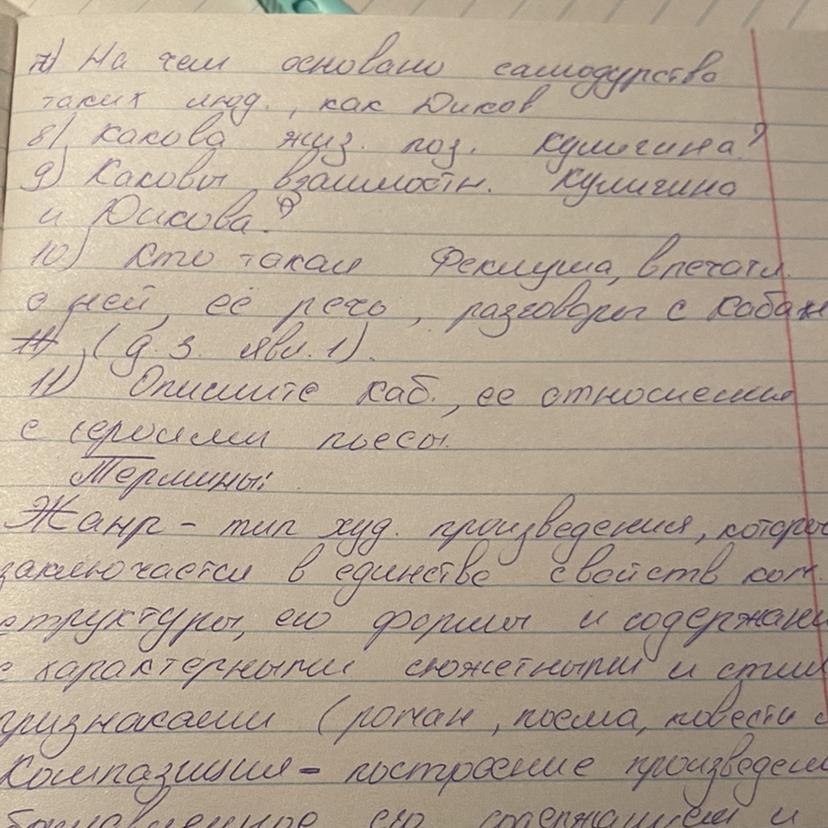 7) На чем основано самодурство
таких люд., как Диков
8) Какова жиз. поз. Кулигина?
9) Каковы взаимоотн. Кулигина
и Дикова?
10) Кто такая Феклуша, впечатл.
о ней, её речь, разговоры с Кабан
11) (д. 3. явл. 1).
11) Опишите Каб., ее отношения
с героями пьесы.
Термины:
Жанр - тип худ. произведения, которое
заключается в единстве свойств ком.
структуры, его формы и содержани
с характерными сюжетными и стил
признаками (роман, поэма, повести
Композиция - построение произведен
его содержанием и